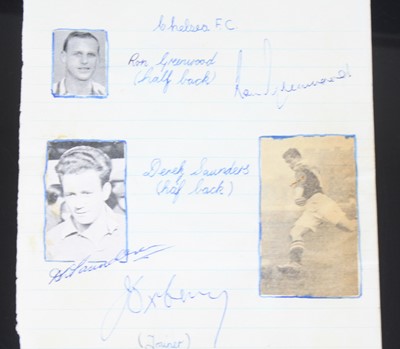 Chelsea F C
Ron Greenwood
(half back)
Ron Greenwood
Derek Saunders
(half back)
D. Saunders
(Trainer)